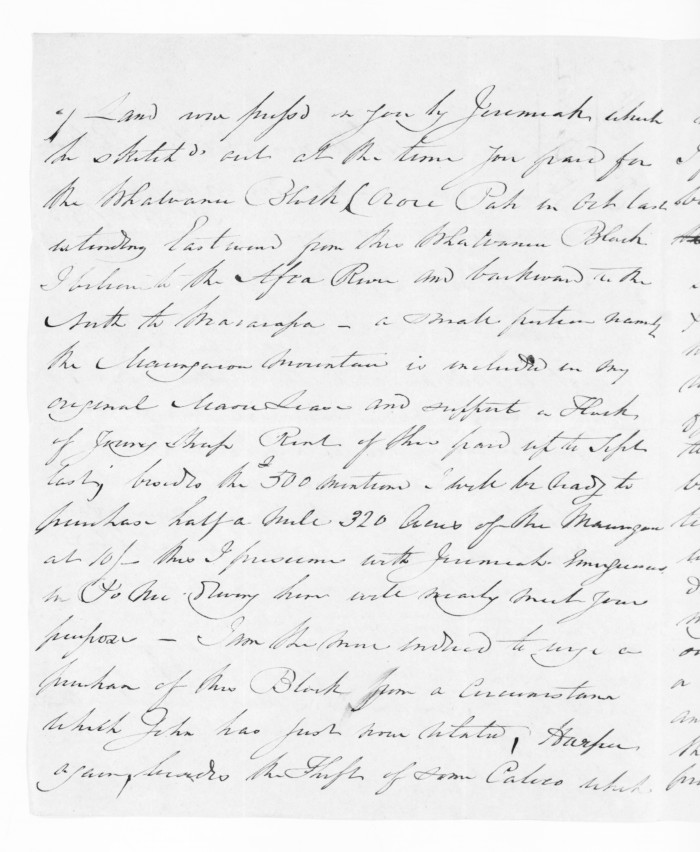 of Land now press'd on you by Jeremiah which
he sketch'd out at the time you paid for
the Whatuanui Block (Aore Pah in Oct last
extending Eastward from this Whatuanui Block
I believe to the River and backward to the
North to - a small portion namely
the mountain is included in my
original Maori Lease and support a Flock
of Young Sheep Rent of this paid up to Sept
last, besides the £500 mention I will be ready to
purchase half a mile 320 Acres of the
at 10/- this I presume with Jeremiah
in his will nearly meet your
purpose - I am the more induced to urge a
purchase of this Block from a Circumstance
which John has just now related, Harper
again, besides the Theft of some Calico which